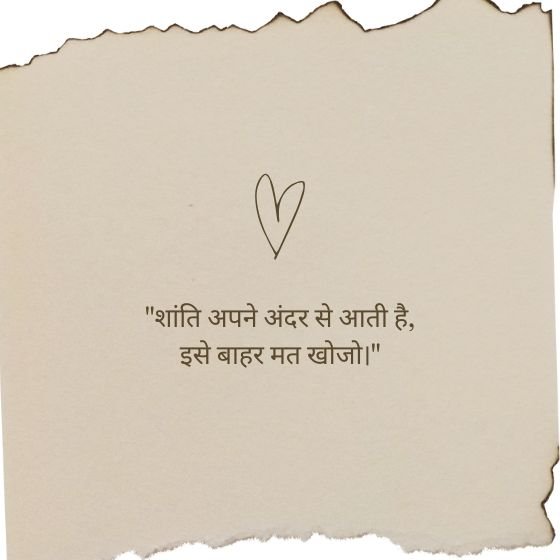 "शांति अपने अंदर से आती है,
इसे बाहर मत खोजो।"